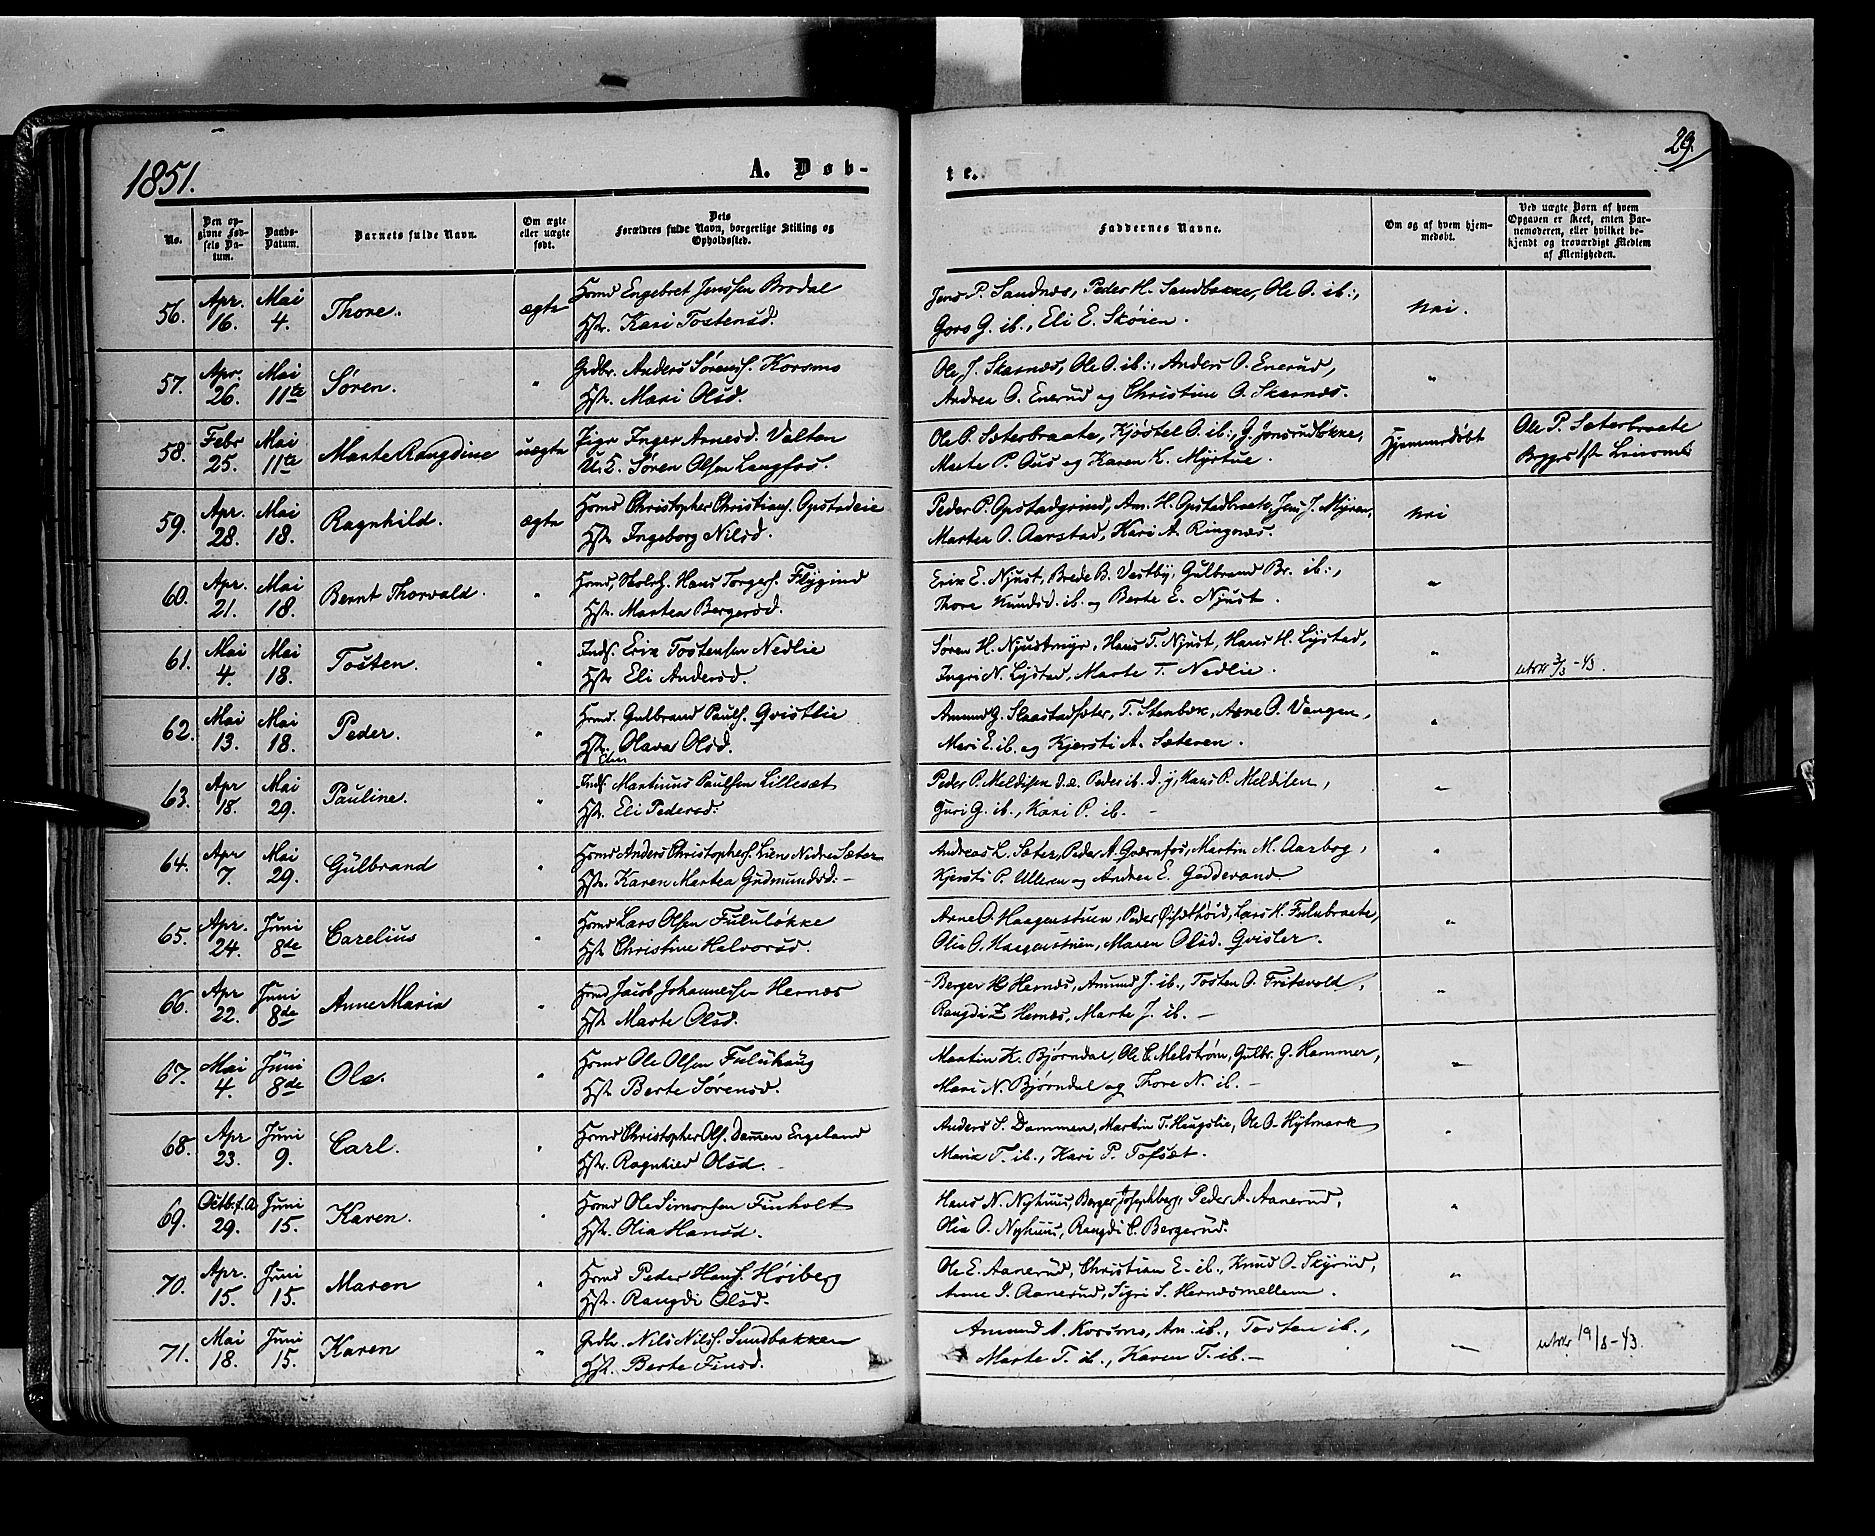 1851.
A. Døb-
te.
29.
No.
Den opgivne Fødsels Datum.
Daabs-Datum.
Barnets fulde Navn.
Om ægte eller uægte født.
Dets Forældres fulde Navn, borgerlige Stilling og Opholdssted.
Faddernes Navne.
Om og af hvem hjemmedøbt.
Ved uægte Børn af hvem Opgaven er skeet, enten Barnemoderen, eller hvilket bekjendt og troværdigt Medlem af Menigheden.
56. Apr. 16. Mai 4. Thore. ægte Hsmd Engebret Jenssen Brodal
Hstr. Kari Tostensd.
Jens P. Sandnes, Peder H. Sandbakke, Ole O. ib:,
Goro G. ib., Eli E. Skøien.
Nei.
57. Apr. 26. Mai 11te Søren. " Grdbr. Anders Sørens. Korsmo
Hstr. Mari Olsd.
Ole J. Skarnes, Ole O. ib:, Anders O. Enerud,
Andrea O. Enerud og Christine O. Skarnes.
"
58. Febr 25. Mai 11te Marte Rangdine uægte Pige Inger Arnesd. Valton
U.K. Søren Olsen Langfos.
Ole P. Sæterbraate, Kjøstel O. ib:, G. Jonsrudløkke,
Marte P. Aus og Karen K. Myrtue.
Hjemmedøbt
Ole P. Sæterbraate
59. Apr. 28. Mai 18. Ragnhild. ægte Hsmd Christopher Christians. Opstadeie
Hstr. Ingeborg Nilsd.
Peder P. Opstadgrind, Am. H. Opstadbraate, Jens J. Myren,
Martea O. Aarstad, Kari A. Ringnæs.
Nei
60. Apr. 21. Mai 18. Bernt Thorvald. " Hsmd, Skolh. Hans Torgers. Flygind
Hstr. Martea Bergersd.
Erik E. Njust, Brede B. Vestby, Gulbrand Br. ib:,
Thore Knudsd. ib. og Berte E. Njust.
"
61. Mai 4. Mai 18. Tosten. " Inds. Erik Tostensen Nedlie
Hstr. Eli Andersd.
Søren H. Njustmyr, Hans T. Njust, Hans H. Lystad,
Ingri N. Lystad, Marte T. Nedlie.
"
62. Mai 13. Mai 18. Peder. " Hsmd. Gulbrand Pauls. Gvistlie
Hstr. Olava Olsd.
Amund G. Slaastadsæter, T. Stenbæk, Arne O. Vangen,
Mari E. ib. og Kjersti A. Sæteren.
"
63. Apr 18. Mai 29. Pauline. " Inds. Martinus Paulsen Lillesæt
Hstr. Eli Pedersd.
Peder P. Meldisen d.æ. Peder ib. d.y, Hans P. Meldisen,
Guri G. ib., Kari P. ib. -
"
64. Apr 7. Mai 29. Gulbrand " Hsmd Anders Christophers. Lien Nedre Sæter
Hstr. Karen Martea Gudmundsd. -
Andreas L. Sæter, Peder A. Gværnfos, Martin M. Aarbog,
Kjersti P. Ulleren og Andrea E. Gaddevand
"
65. Apr. 24. Juni 8de Carelius " Hsmd Lars Olsen Fululøkke
Hstr Christine Halvorsd.
Arne O. Haagenstuen, Peder Lars H. Fulubraate,
Olia O. Haagenstuen, Maren Olsd. Gvisler.
"
66. Apr 22. Juni 8de Anne Maria " Hsmd Jacob Johannessen Hernæs
Hstr. Marte Olsd.
Berger H Hernæs, Amund J. ib., Tosten O. Fritsvold,
Rangdi Z Hernæs, Marte J. ib. -
"
67. Mai 4. Juni 8de Ole. " Hsmd Ole Olsen Fuluhaug
Hstr. Berte Sørensd.
Martin K. Bjørndal, Ole C. Melstrøm, Gulbr. G. Hammer,
Mari N. Bjørndal og Thore N. ib. -
"
68. Apr 23. Juni 9. Carl. " Hsmd Christopher Ols. Dammen Engeland
Hstr. Ragnhild Olsd. -
Anders S. Dammen, Martin T. Haugslie, Ole O. Hytmark
Marie T. ib., Kari P. Tofsæt.
"
69. Octb. f.A. 29. Juni 15. Karen. " Hsmd Ole Simonsen Finholt
Hstr. Olia Hansd.
Hans N. Nyhuus, Berger Josephberg, Peder A. Aanerud,
Olia O. Nyhuus, Rangdi C. Bergerud.
"
70. Apr. 15. Juni 15. Maren " Hsmd Peder Hans. Høiberg
Hstr. Rangdi Olsd.
Ole E. Aanerud, Christian E. ib., Knud O. Skyrud,
Anne I. Aanerud, Sigri S. Hernæsmellem.
"
71. Mai 18. Juni 15. Karen " Grdbr. Nils Nils. Sundbakken
Hstr. Berte Finsd.
Amund A. Korsmo, Am. ib., Tosten ib.,
Marte T. ib., Karen T. ib. -
"
19/8-43.